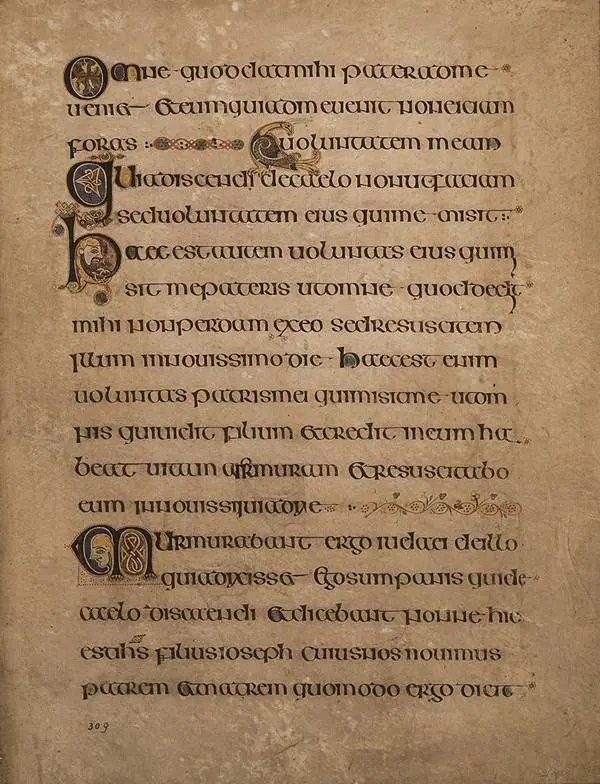 Omne quod dat mihi pater ad me
ueniet et eum qui ad me uenit non eiciam
foras uoluntatem meam
Quia discendi de caelo non ut faciam
sed uoluntatem eius qui me misit
haec est autem uoluntas eius qui mi
sit me pateris ut omne quod dedit
mihi non perdam ex eo sed resuscitem
illum in nouissimo die haec est enim
uoluntas patris mei qui misit me ut om
nis qui uidit filium et credit in eum ha
beat uitam et resuscitabo
eum
Murmurabant ergo iudaei de illo
quia dixisset Ego sum panis qui de
caelo discendi et dicebant nonne hic
est ihs filius ioseph cuius nos nouimus
patrem et matrem quomodo ergo dicit
309